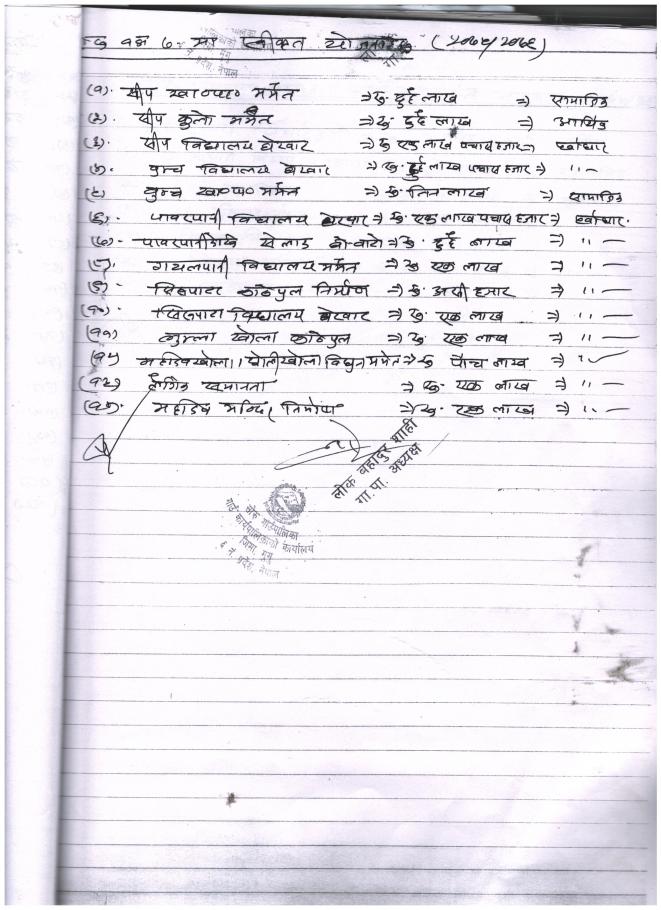 वडा नं ७ मा स्वीकृत योजनाहरू (२०७५/२०७६)
(१). सीप खा०पा० मर्मत ⇒ रु. दुई लाख ⇒ सामाजिक
(२). सीप कुलो मर्मत ⇒ रु. दुई लाख ⇒ आर्थिक
(३). सीप विद्यालय घेरवार ⇒ रु एक लाख पचास हजार ⇒ पूर्वाधार
(४). बुम्च विद्यालय घेरवार ⇒ रु. दुई लाख पचास हजार ⇒ ,, —
(५) बुम्च खा०पा० मर्मत ⇒ रु. तिन लाख ⇒ सामाजिक
(६). पावरपानी विद्यालय घेरवार ⇒ रु. एक लाख पचास हजार ⇒ पूर्वाधार.
(७) - घो.बाटो ⇒ रु. दुई लाख ⇒ ,, —
(८). गयलपानी विद्यालय मर्मत ⇒ रु एक लाख ⇒ ,, —
(९). काठेपुल निर्माण ⇒ रु. असी हजार ⇒ ,, —
(१०). विद्यालय घेरवार ⇒ रु. एक लाख ⇒ ,, —
(११) खोला काठेपुल ⇒ रु. एक लाख ⇒ ,, —
(१२) विधुत मर्मत ⇒ रु पाँच लाख ⇒
(१३) लैंगिक समानता ⇒ रु. एक लाख ⇒ ,, —
(१४). मन्दिर निर्माण ⇒ रु. एक लाख ⇒ ,, —
लोक बहादुर शाही
गा. पा. अध्यक्ष
गाउँपालिका
गाउँ कार्यपालिकाको कार्यालय
जिल्ला मुगु
६ नं. प्रदेश, नेपाल